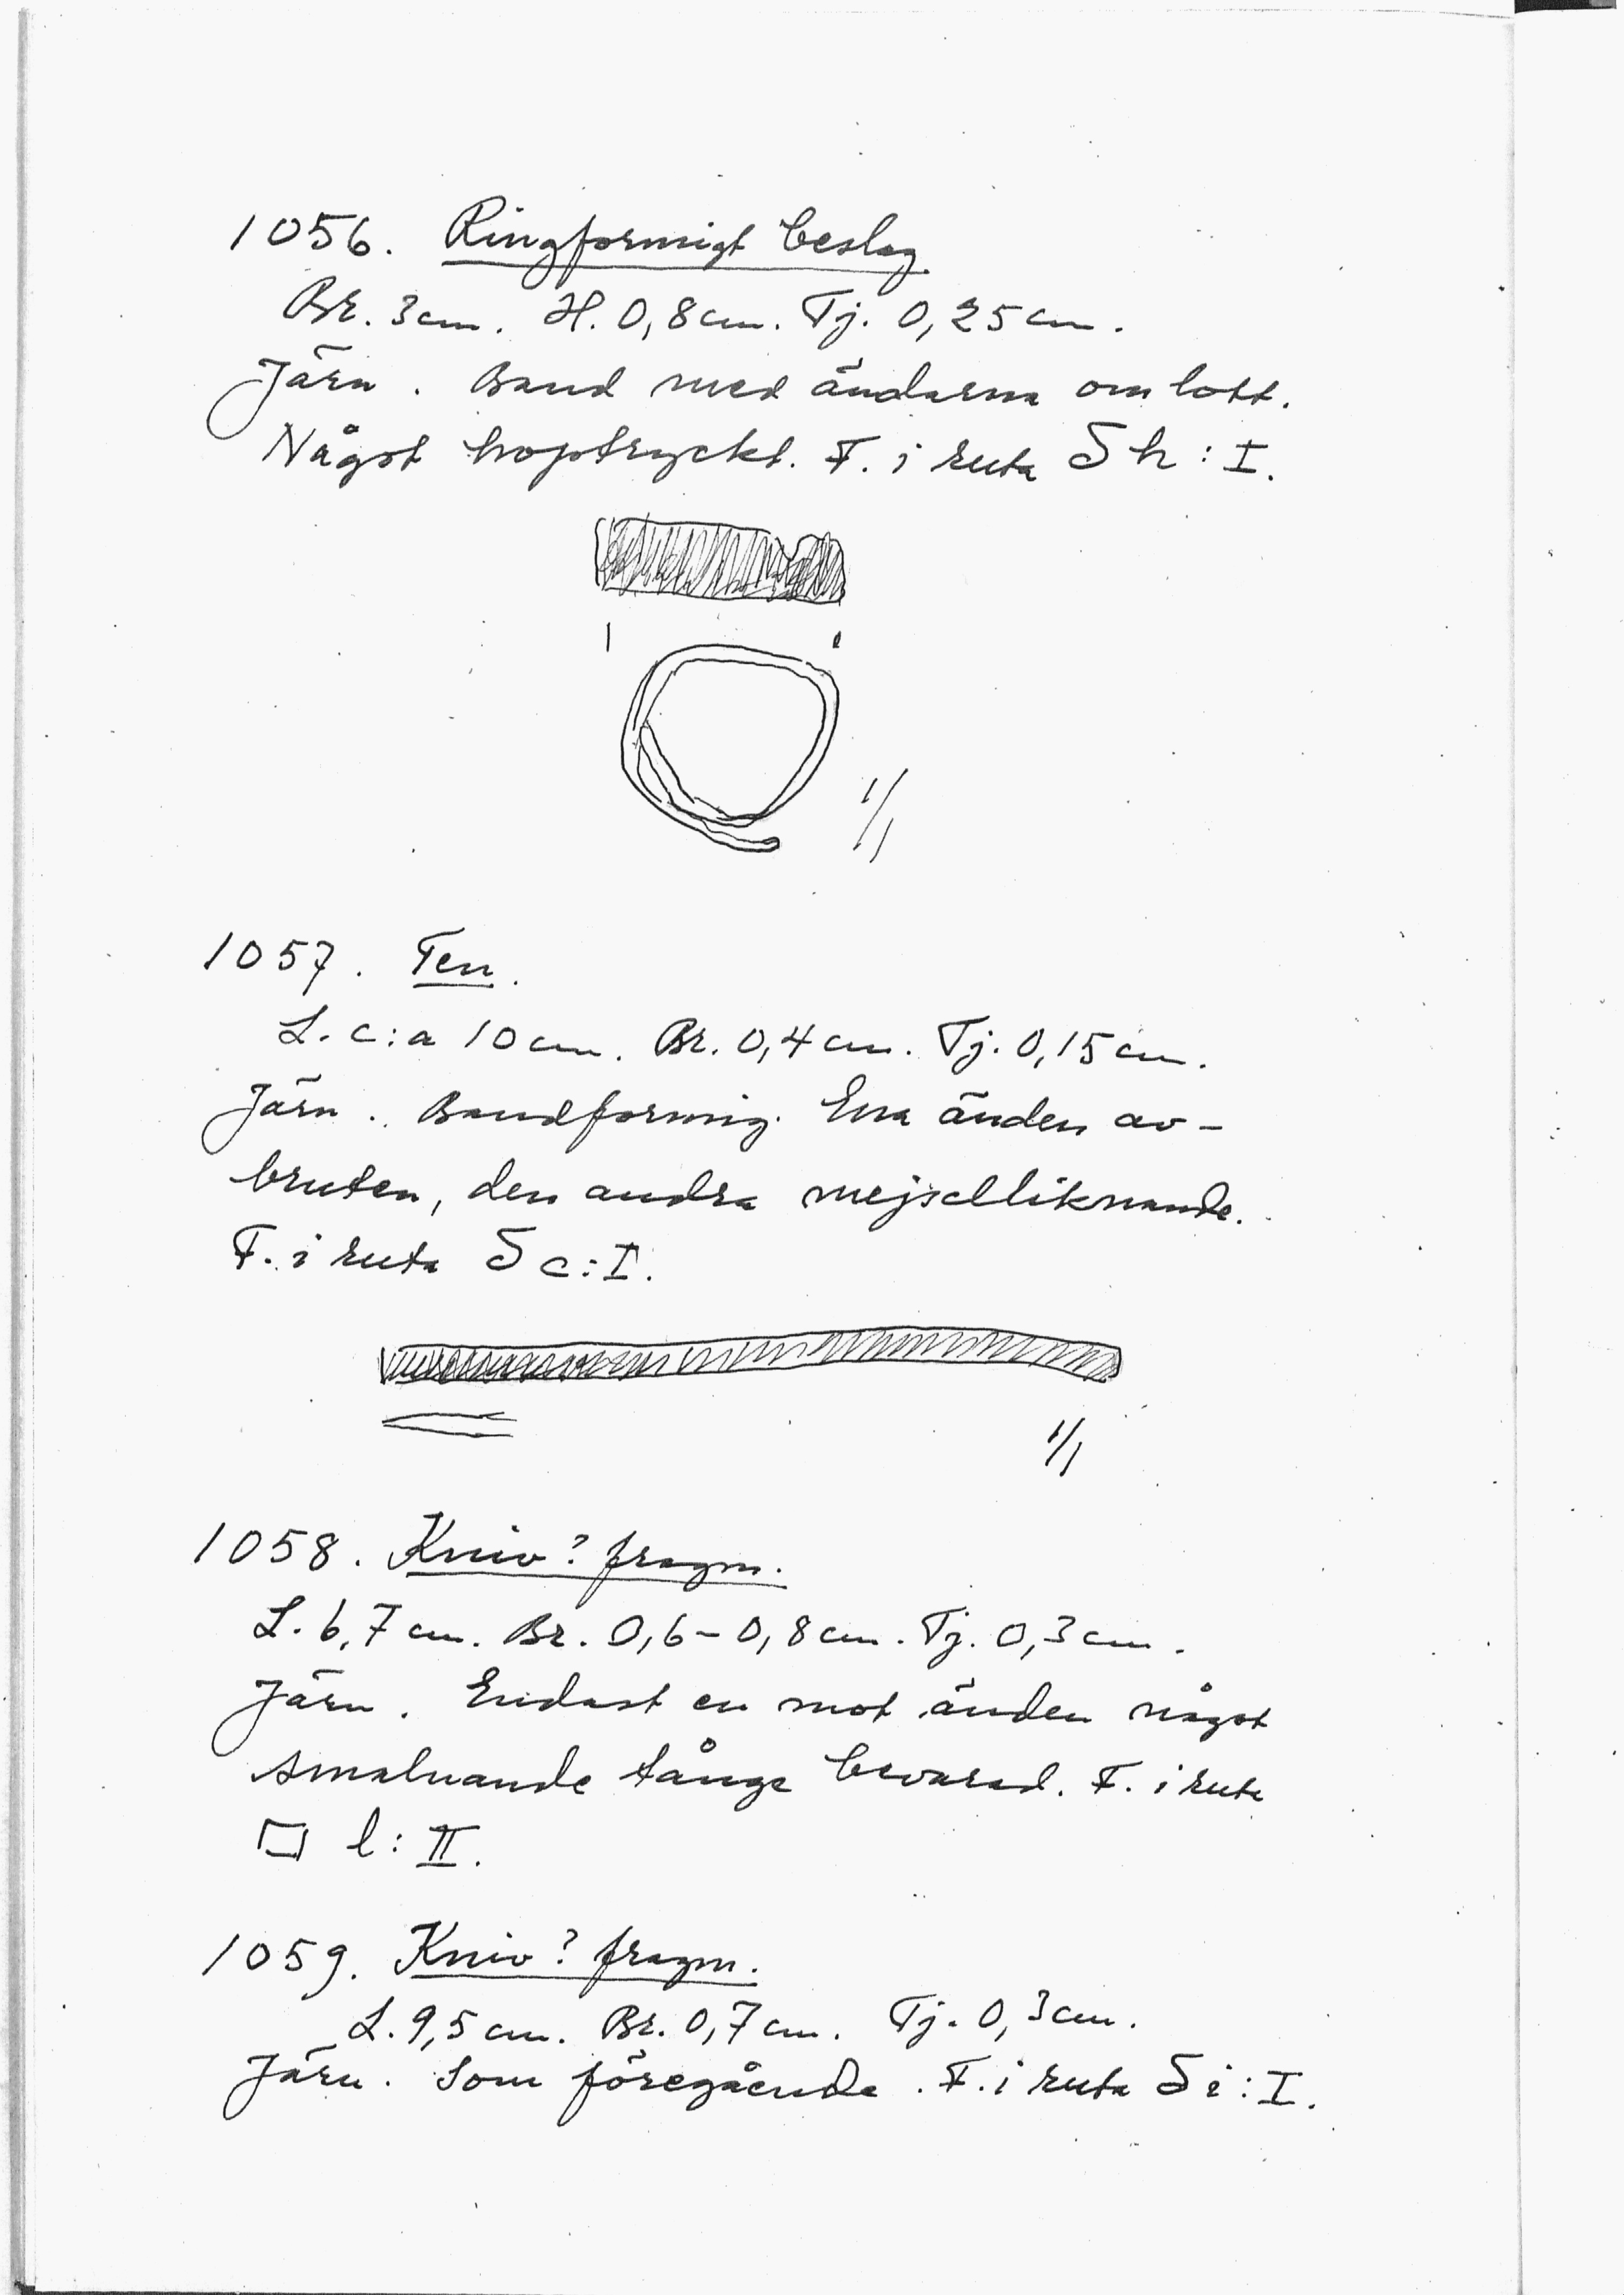 1056. Ringformigt beslag
Br. 3 cm. H. 0,8 cm. Tj. 0,25 cm.
Järn. Band med ändarna om lott.
Något hoptryckt. F. i ruta S h : I.
1/1
1057. Ten.
L. c:a 10 cm. Br. 0,4 cm. Tj. 0,15 cm.
Järn. Bandformig. Ena änden av-
bruten, den andra mejselliknande.
F. i ruta S c : I.
1/1
1058. Kniv? fragm.
L. 6,7 cm. Br. 0,6 - 0,8 cm. Tj. 0,3 cm.
Järn. Endast en mot änden något
smalnande tånge bevarad. F. i ruta
l : II.
1059. Kniv? fragm.
L. 9,5 cm. Br. 0,7 cm. Tj. 0,3 cm.
Järn. Som föregående. F. i ruta S i : I.